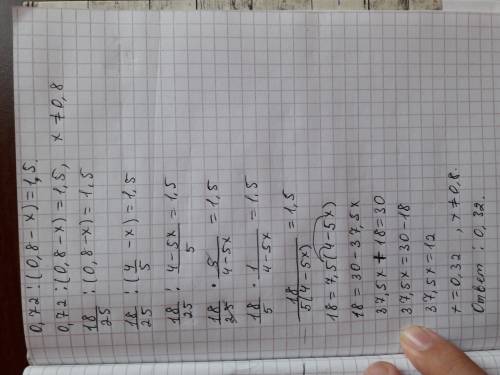 0,72 : (0,8 - x) = 1,5.
0,72 : (0,8 - x) = 1,5, x ≠ 0,8
18/25 : (0,8 - x) = 1,5
18/25 : (4/5 - x) = 1,5
18/25 : (4 - 5x)/5 = 1,5
18/25 · 5/(4 - 5x) = 1,5
18/5 · 1/(4 - 5x) = 1,5
18/(5(4 - 5x)) = 1,5
18 = 7,5(4 - 5x)
18 = 30 - 37,5x
37,5x + 18 = 30
37,5x = 30 - 18
37,5x = 12
x = 0,32, x ≠ 0,8.
Ответ: 0,32.